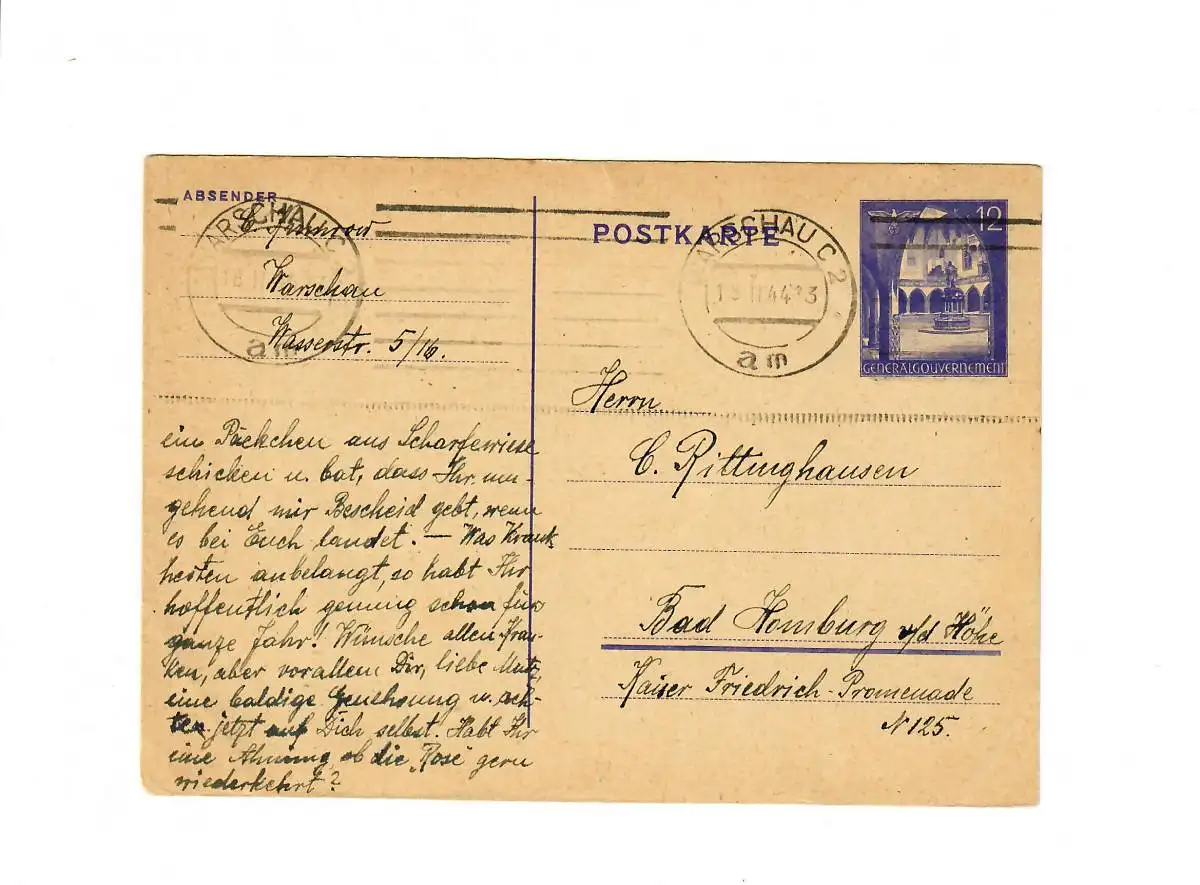 ABSENDER
Warschau
Wasserstr. 5/16.
WARSCHAU C
am
POSTKARTE
WARSCHAU C 2
44
am
12
GENERALGOUVERNEMENT
Herrn
C. Rittinghausen
Bad Homburg v/d Höhe
Kaiser Friedrich-Promenade
N 125.
ein Päckchen aus Scharfewiese
schicken u. bat, dass Ihr um-
gehend mir Bescheid gebt, wenn
es bei Euch landet. — Was Krank
heiten anbelangt, so habt Ihr
hoffentlich genung schon für
ganze Jahr! Wünsche allen Kran-
ken, aber vorallem Dir, liebe
eine baldige Genehsung u. ach-
ten jetzt auf Dich selbst. Habt Ihr
eine Ahnung ob die "Rose" gern
wiederkehrt?